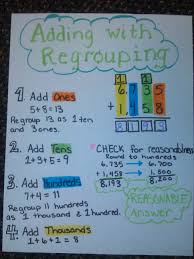 Adding with
Regrouping
1. Add Ones
5+8=13
Regroup 13 as 1 ten
and 3 ones.
2. Add Tens
1+3+5=9
3. Add Hundreds
7+4=11
Regroup 11 hundreds
as 1 thousand & 1 hundred.
4. Add Thousands
1+6+1=8
1 1
6,735
+ 1,458
8,193
CHECK for reasonableness
Round to hundreds
6,735 → 6,700
+1,458 → 1,500
8,193 8,200
REASONABLE
Answer